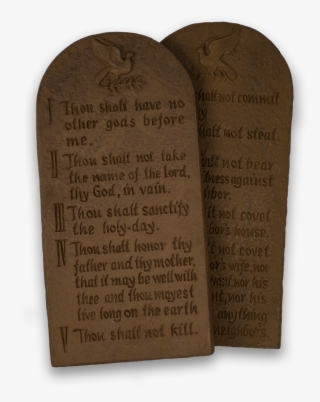 I Thou shalt have no
other gods before
me.
II Thou shalt not take
the name of the lord,
thy God, in vain.
III Thou shalt sanctify
the holy-day.
IV Thou shalt honor thy
father and thy mother,
that it may be well with
thee and thou mayest
live long on the earth
V Thou shalt not kill.
shalt not commit
shalt not steal.
shalt not bear
against
covet
house.
covet
wife, nor
nor his
nor his
anything
neighbor's.